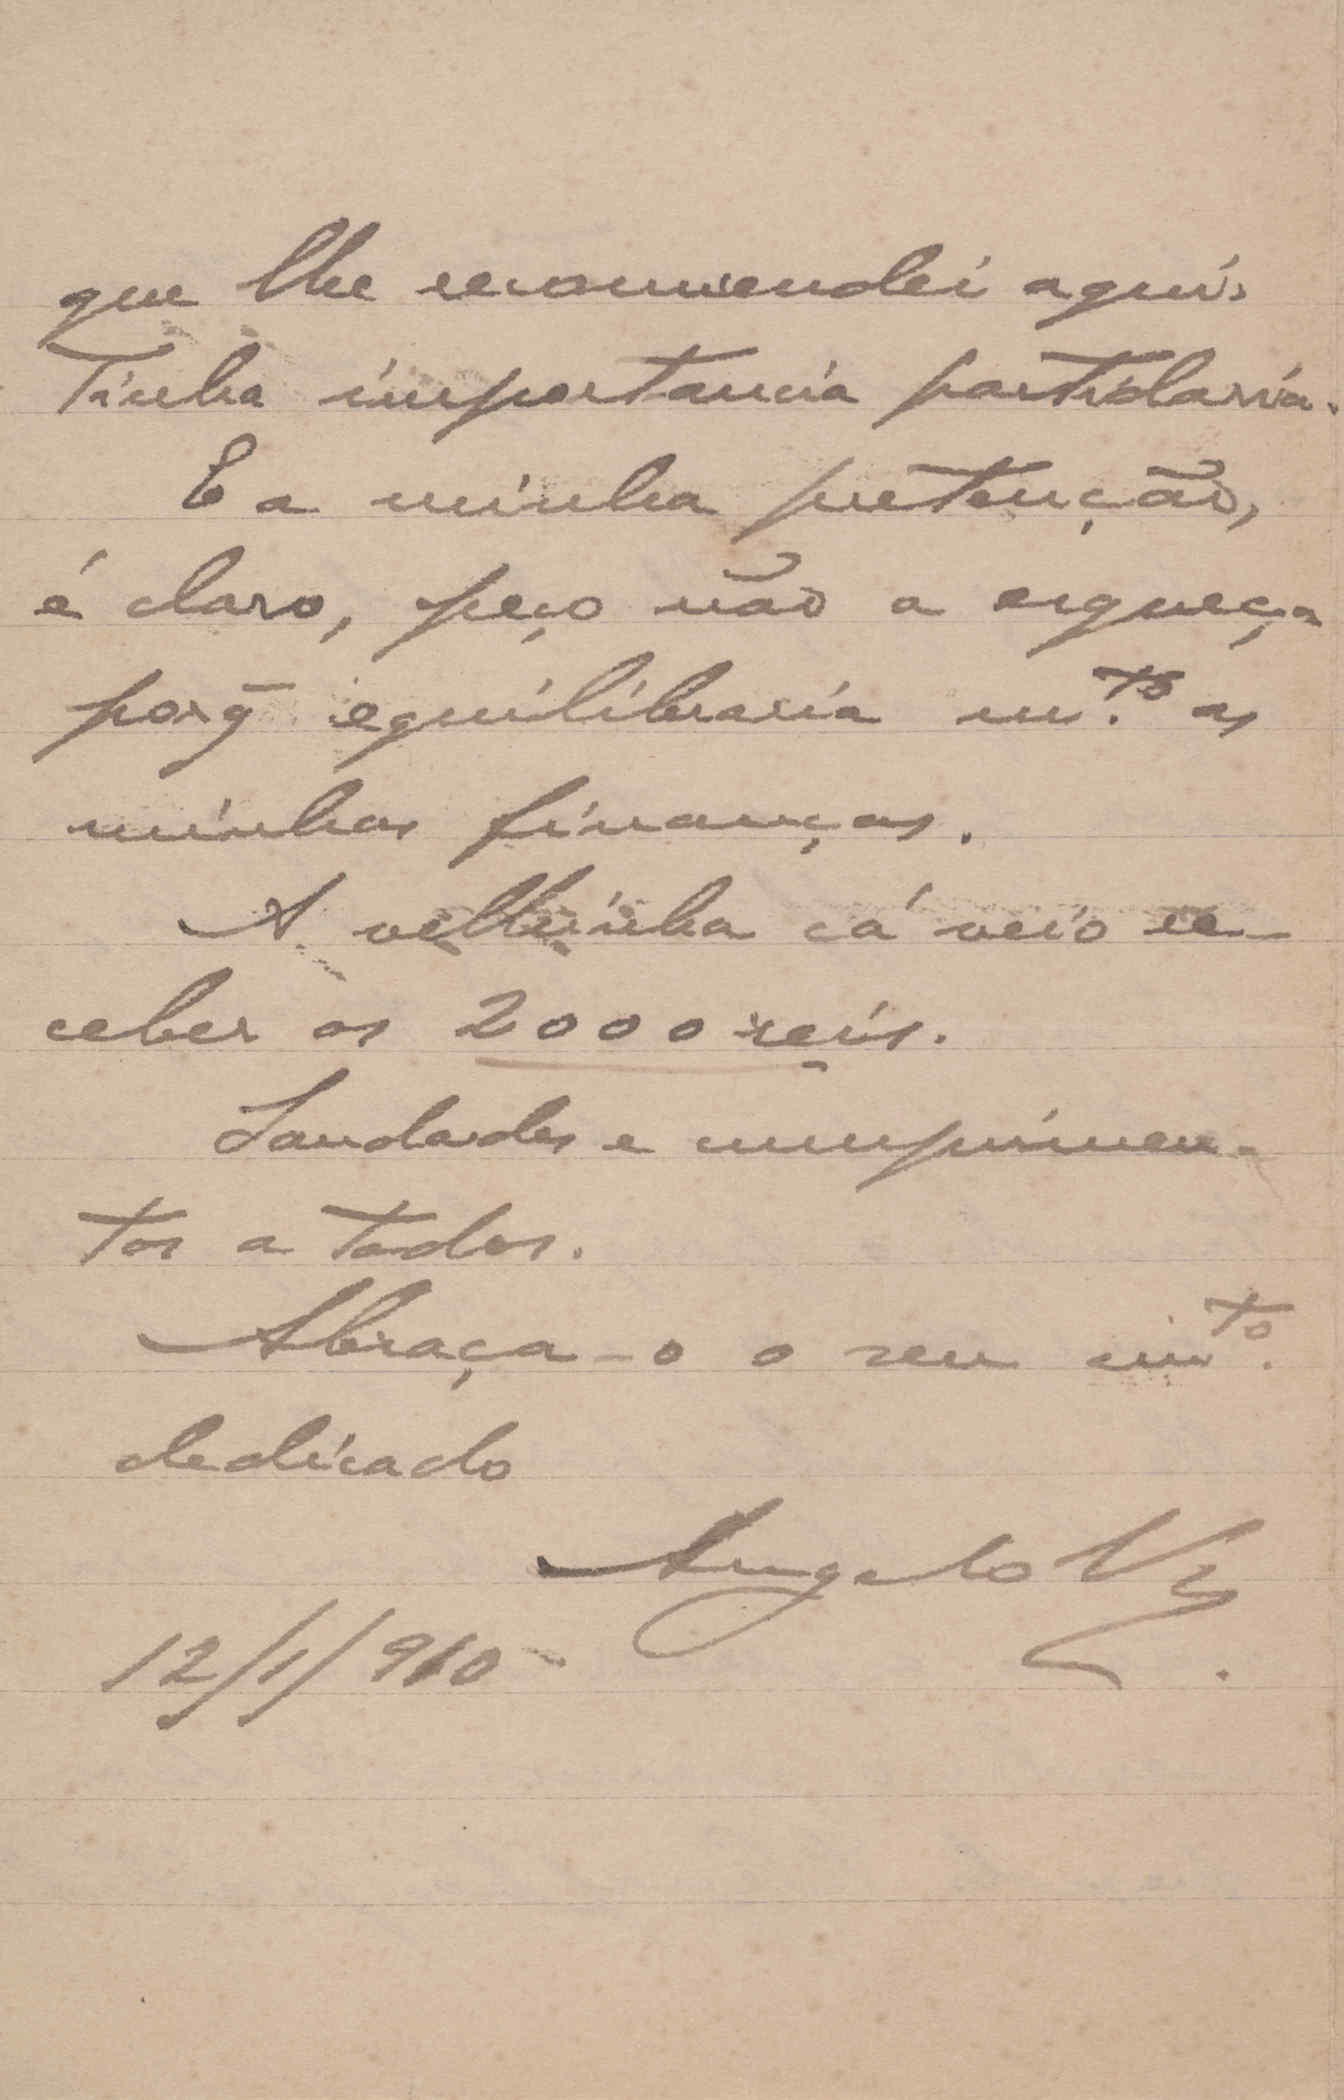 que lhe recommendei aqui,
Tinha importancia partidaria.
E a minha pretenção,
é claro, peço não a esqueça
porq̃ equilibraria m.to as
minhas finanças.
A velhinha cá veio re-
ceber os 2000 reis.
Saudades e cumprimen-
tos a todos.
Abraça-o o seu m.to
dedicado
Angelo V
12/1/910